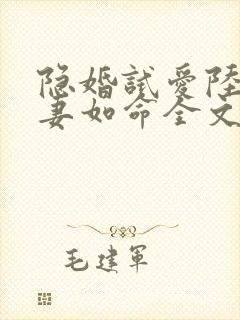 隐婚試愛陸
妻如命全文
毛建軍